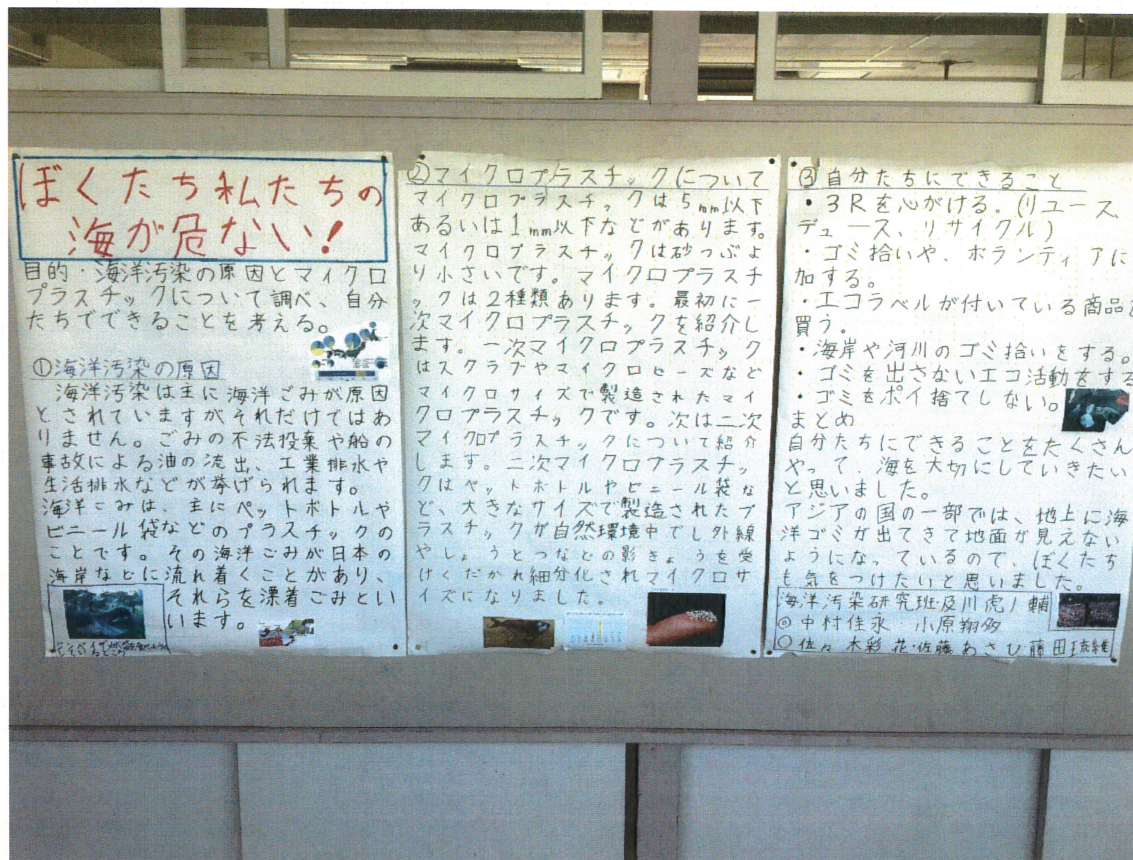 ぼくたち私たちの
海が危ない!
目的・海洋汚染の原因とマイクロ
プラスチックについて調べ、自分
たちでできることを考える。
①海洋汚染の原因
海洋汚染は主に海洋ごみが原因
とされていますがそれだけではあ
りません。ごみの不法投棄や船の
事故による油の流出、工業排水や
生活排水などが挙げられます。
海洋ごみは、主にペットボトルや
ビニール袋などのプラスチックの
ことです。その海洋ごみが日本の
海岸などに流れ着くことがあり、
それらを漂着ごみとい
います。
②マイクロプラスチックについて
マイクロプラスチックは5mm以下
あるいは1mm以下などがあります。
マイクロプラスチックは砂つぶよ
り小さいです。マイクロプラスチ
ックは2種類あります。最初に一
次マイクロプラスチックを紹介し
ます。一次マイクロプラスチック
はスクラブやマイクロビーズなど
マイクロサイズで製造されたマイ
クロプラスチックです。次は二次
マイクロプラスチックについて紹介
します。二次マイクロプラスチッ
クはペットボトルやビニール袋な
ど、大きなサイズで製造されたプ
ラスチックが自然環境中でし外線
やしょうとつなどの影きょうを受
けくだかれ細分化されマイクロサ
イズになりました。
③自分たちにできること
・3Rを心がける。(リユース、
デュース、リサイクル)
・ゴミ拾いや、ボランティアに
加する。
・エコラベルが付いている商品を
買う。
・海岸や河川のゴミ拾いをする。
・ゴミを出さないエコ活動をする
・ゴミをポイ捨てしない。
まとめ
自分たちにできることをたくさん
やって、海を大切にしていきたい
と思いました。
アジアの国の一部では、地上に海
洋ゴミが出てきて地面が見えない
ようになっているので、ぼくたち
も気をつけたいと思いました。
海洋汚染研究班及川虎ノ輔
◎中村佳永・小原翔多
○佐々木彩花・佐藤あさひ藤田